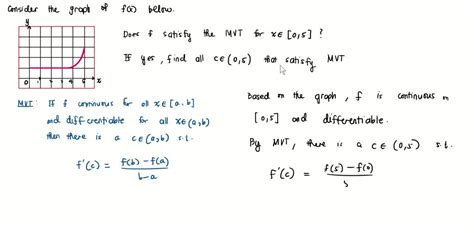 Consider the graph of f(x) below.
y
0 1 2 3 4 5 x
Does f satisfy the MVT for x ∈ [0,5] ?
If yes, find all c ∈ (0,5) that satisfy MVT
MVT: If f continuous for all x ∈ [a,b]
and differentiable for all x ∈ (a,b)
then there is a c ∈ (a,b) s.t.
f'(c) = f(b) - f(a) / b-a
Based on the graph, f is continuous on
[0,5] and differentiable.
By MVT, there is a c ∈ (0,5) s.t.
f'(c) = f(5) - f(0) / 5